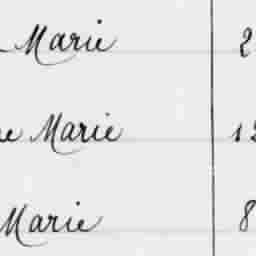 Marie 2
Marie 12
Marie 8